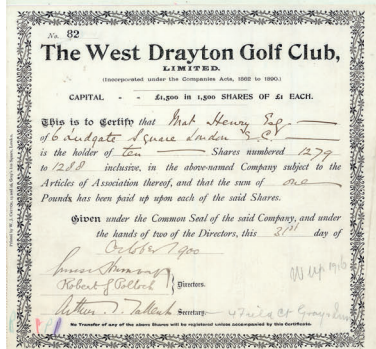 No. 82
The West Drayton Golf Club,
LIMITED.
(Incorporated under the Companies Acts, 1862 to 1890.)
CAPITAL - - £1,500 in 1,500 SHARES OF £1 EACH.
This is to Certify that Mat Henry Esq
of 6 Ludgate Square London E.C.
is the holder of ten Shares numbered 1279
to 1288 inclusive, in the above-named Company subject to the
Articles of Association thereof, and that the sum of one
Pounds, has been paid up upon each of the said Shares.
Given under the Common Seal of the said Company, and under
the hands of two of the Directors, this 31st day of
October 1900
Directors.
Robert G Pollock
Arthur Secretary.
No Transfer of any of the above Shares will be registered unless accompanied by this Certificate.